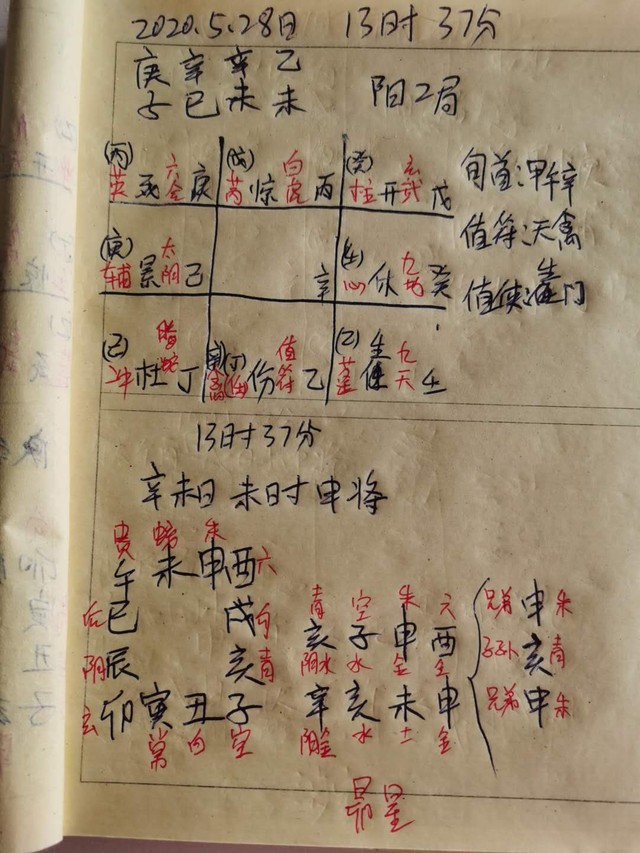 2020.5.28日 13时 37分
庚 辛 辛 乙
子 巳 未 未 阳二局
(丙) (戊) 白 (癸) 玄
英 死 六合 庚 芮 惊 白虎 丙 柱 开 玄武 戊
旬首:甲午辛
值符:天禽
(庚) 太
辅 景 太阴 己 辛 (壬) 心 休 九地 癸
值使:生门
(乙) 冲 杜 螣蛇 丁 禽 (丁) 值符 乙 (己) 蓬 生 九天 壬
13时37分
辛未日 未时申将
贵 蛇 朱
午 未 申 酉 六
后 巳 戌 勾 青 空 朱 六 兄弟 申 朱
阴 辰 亥 青 亥 子 申 酉 子孙 亥 青
阴水 水 金 金
玄 卯 寅 丑 子 辛 亥 未 申 兄弟 申 朱
常 白 空 阴金 水 土 金
昴星